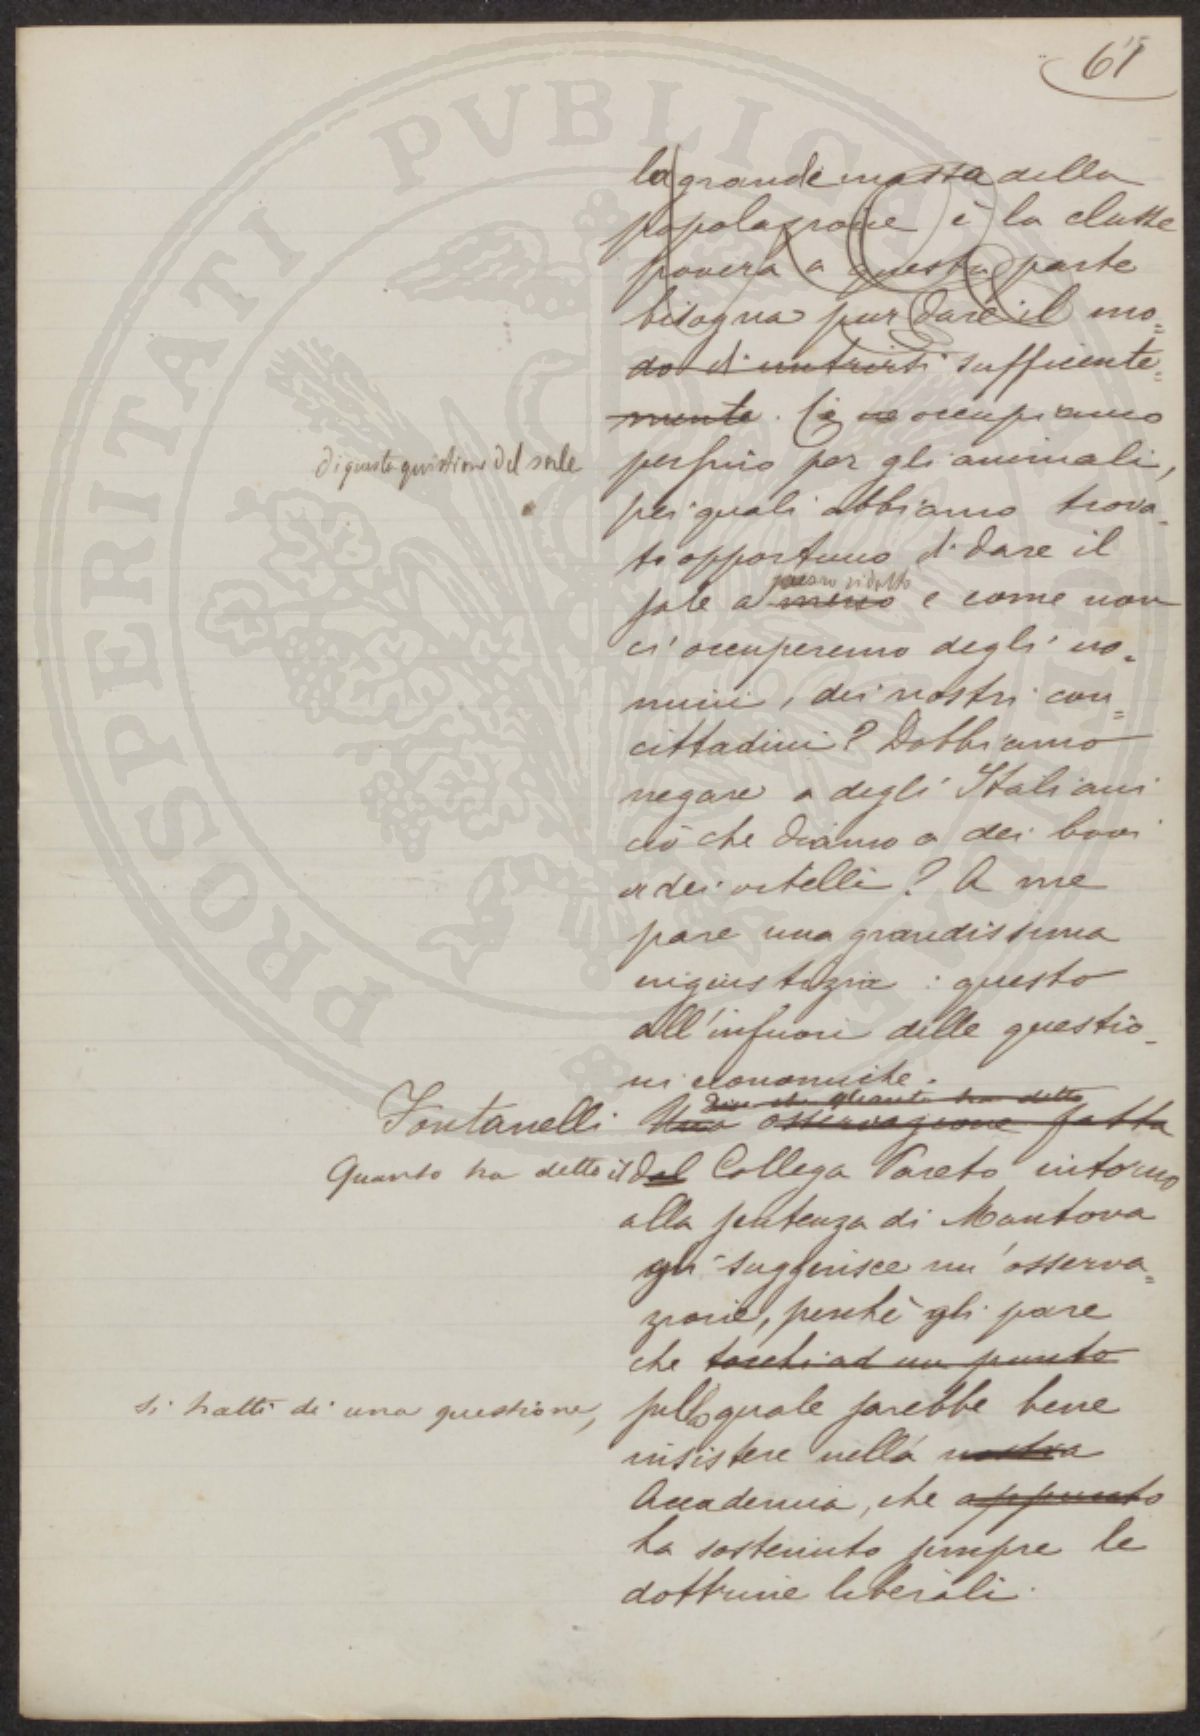 61
la grande massa della
popolazione è la classe
povera a questa parte
bisogna pur dare il mo=
do di nutrirsi sufficente=
mente. Ci ne occupiamo
di questa quistione del sale
perfino per gli animali,
pei quali abbiamo trova-
to opportuno di dare il
prezzo ridotto
sale a meno e come non
ci occuperemo degli uo=
mini, dei nostri con=
cittadini? Dobbiamo
negare a degli Italiani
ciò che diamo a dei bovi
o dei vitelli? A me
pare una grandissima
ingiustizia: questo
all'infuori delle questio-
ni economiche.
Fontanelli Una osservazione fatta
Quanto ha detto il dal Collega Pareto intorno
alla sentenza di Mantova
gli suggerisce un'osserva=
zione, perchè gli pare
che tocchi ad un punto
si tratti di una questione, sulla quale sarebbe bene
insistere nella nostra
Accademia, che appunto
ha sostenuto sempre le
dottrine liberali.
PROSPERITATI PVBLICAE